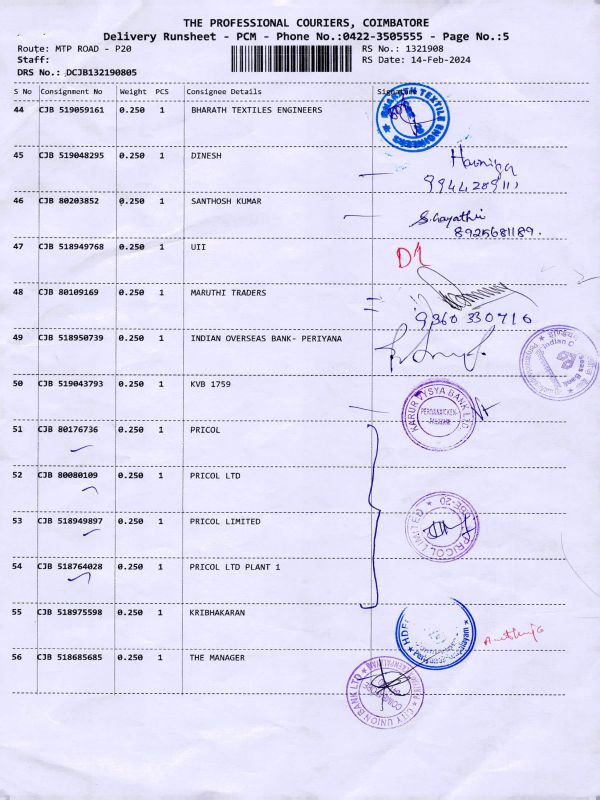 THE PROFESSIONAL COURIERS, COIMBATORE
Delivery Runsheet - PCM - Phone No.:0422-3505555 - Page No.:5
Route: MTP ROAD - P20 RS No.: 1321908
Staff: RS Date: 14-Feb-2024
DRS No.: DCJB132190805
S No Consignment No Weight PCS Consignee Details Signature
44 CJB 519059161 0.250 1 BHARATH TEXTILES ENGINEERS
BHARATH TEXTILE ENGINEERS
45 CJB 519048295 0.250 1 DINESH
9944209111
46 CJB 80203852 0.250 1 SANTHOSH KUMAR
S. Gayathri
8925681189.
47 CJB 518949768 0.250 1 UII
D1
48 CJB 80109169 0.250 1 MARUTHI TRADERS
9360 330716
49 CJB 518950739 0.250 1 INDIAN OVERSEAS BANK- PERIYANA
50 CJB 519043793 0.250 1 KVB 1759
KARUR VYSYA BANK LTD
51 CJB 80176736 0.250 1 PRICOL
52 CJB 80080109 0.250 1 PRICOL LTD
53 CJB 518949897 0.250 1 PRICOL LIMITED
PRICOL LIMITED
54 CJB 518764028 0.250 1 PRICOL LTD PLANT 1
55 CJB 518975598 0.250 1 KRIBHAKARAN
HDFC
56 CJB 518685685 0.250 1 THE MANAGER
CITY UNION BANK LTD